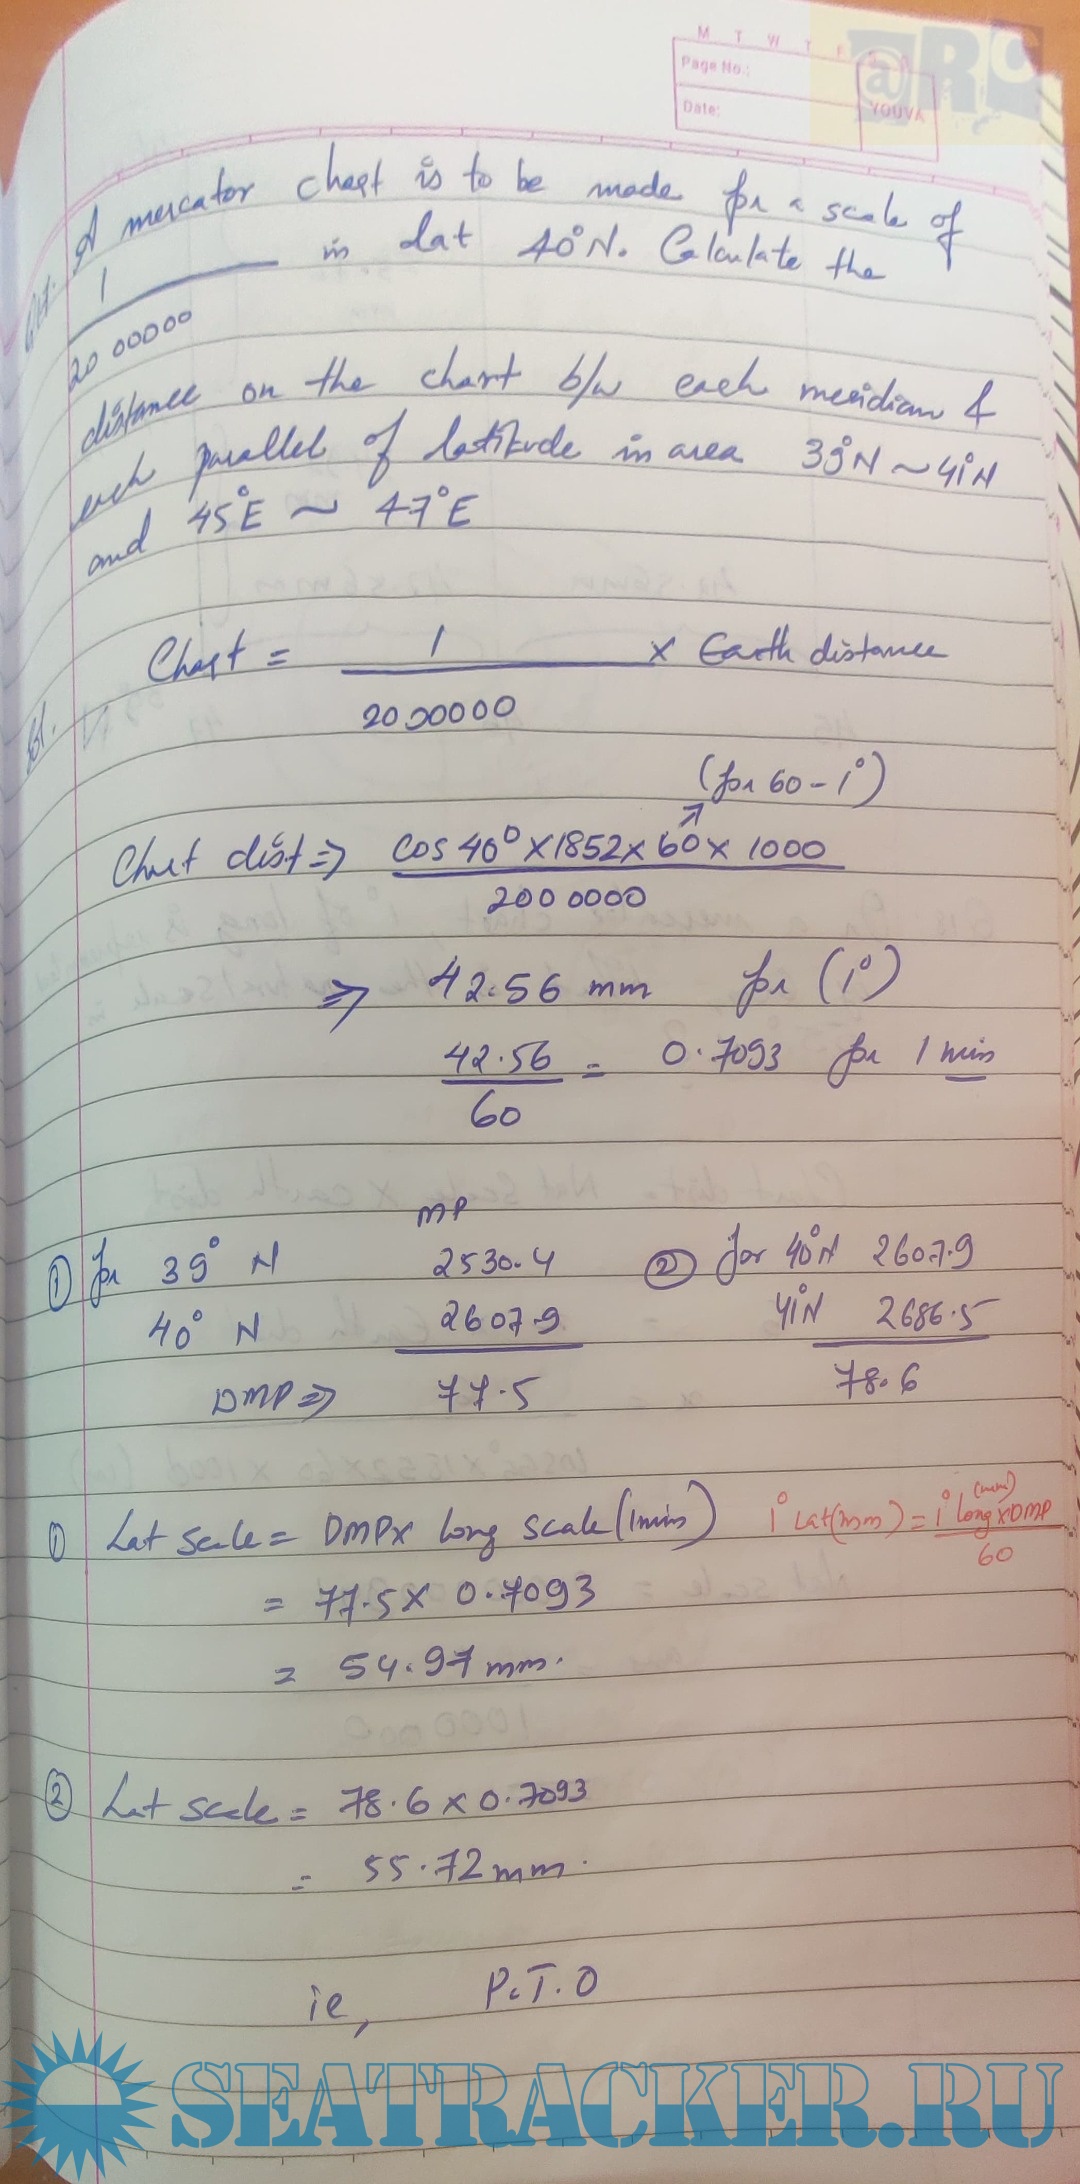 M T W T F
Page No.:
Date:
YOUVA
@RC
A mercator chart is to be made for a scale of
1 in Lat 40°N. Calculate the
20 00000
distance on the chart b/w each meridian &
each parallel of latitude in area 39°N ~ 41°N
and 45°E ~ 47°E
Chart = 1 × Earth distance
2000000
(for 60 - 1°)
Chart dist => cos 40° × 1852 × 60 × 1000
2000000
=> 42.56 mm for (1°)
42.56 = 0.7093 for 1 min
60
MP
① for 39° N 2530.4 ② for 40°N 2607.9
40° N 2607.9 41°N 2686.5
DMP => 77.5 78.6
① Lat scale = DMP× long scale (1min) 1° Lat(mm) = 1° long(mm)×DMP
60
= 77.5 × 0.7093
= 54.97 mm.
② Lat scale = 78.6 × 0.7093
= 55.72 mm.
ie, P.T.O
SEATRACKER.RU